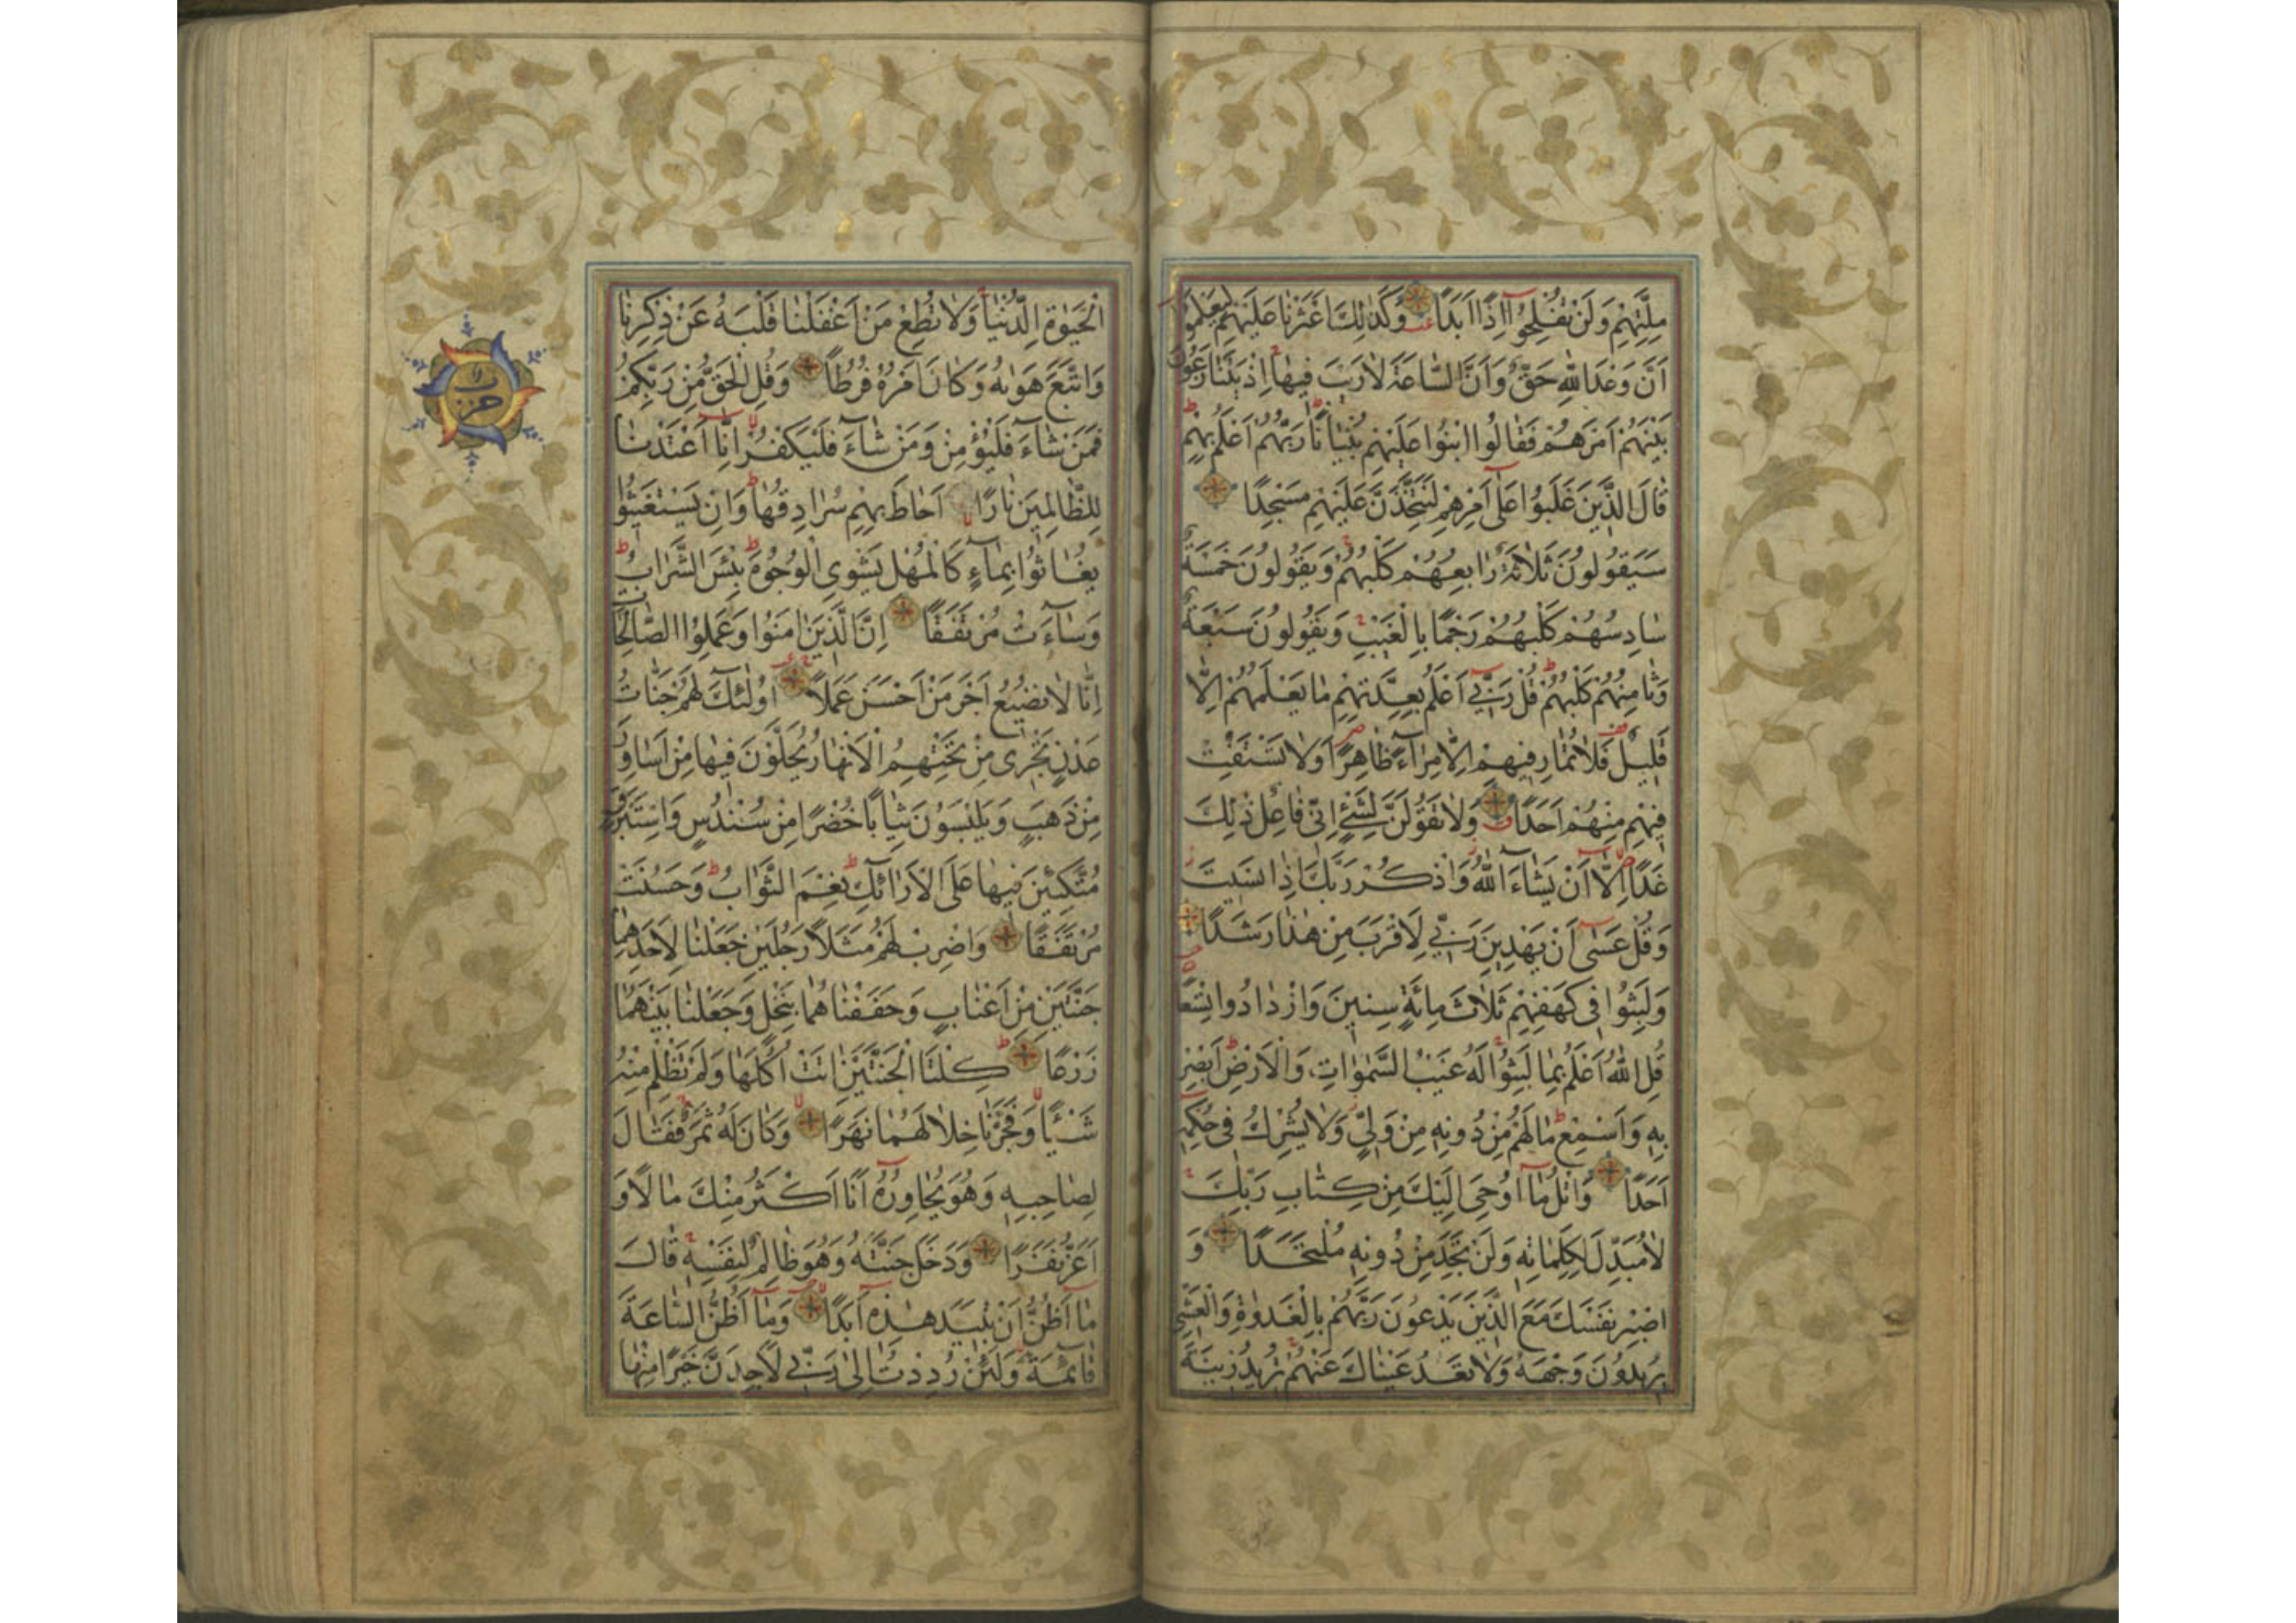 مِلَّتِهِمْ وَلَنْ تُفْلِحُوٓا اِذًا اَبَدًا وَكَذٰلِكَ اَعْثَرْنَا عَلَيْهِمْ لِيَعْلَمُوٓا
اَنَّ وَعْدَ اللّٰهِ حَقٌّ وَاَنَّ السَّاعَةَ لَا رَيْبَ فِيهَا اِذْ يَتَنَازَعُونَ
بَيْنَهُمْ اَمْرَهُمْ فَقَالُوا ابْنُوا عَلَيْهِمْ بُنْيَانًا رَبُّهُمْ اَعْلَمُ بِهِمْ
قَالَ الَّذِينَ غَلَبُوا عَلٰٓى اَمْرِهِمْ لَنَتَّخِذَنَّ عَلَيْهِمْ مَسْجِدًا
سَيَقُولُونَ ثَلٰثَةٌ رَابِعُهُمْ كَلْبُهُمْ وَيَقُولُونَ خَمْسَةٌ
سَادِسُهُمْ كَلْبُهُمْ رَجْمًا بِالْغَيْبِ وَيَقُولُونَ سَبْعَةٌ
وَثَامِنُهُمْ كَلْبُهُمْ قُلْ رَبِّٓى اَعْلَمُ بِعِدَّتِهِمْ مَا يَعْلَمُهُمْ اِلَّا
قَلِيلٌ فَلَا تُمَارِ فِيهِمْ اِلَّا مِرَآءً ظَاهِرًا وَلَا تَسْتَفْتِ
فِيهِمْ مِنْهُمْ اَحَدًا وَلَا تَقُولَنَّ لِشَىْءٍ اِنِّى فَاعِلٌ ذٰلِكَ
غَدًا اِلَّآ اَنْ يَشَآءَ اللّٰهُ وَاذْكُرْ رَبَّكَ اِذَا نَسِيتَ
وَقُلْ عَسٰٓى اَنْ يَهْدِيَنِ رَبِّى لِاَقْرَبَ مِنْ هٰذَا رَشَدًا
وَلَبِثُوا فِى كَهْفِهِمْ ثَلٰثَ مِائَةٍ سِنِينَ وَازْدَادُوا تِسْعًا
قُلِ اللّٰهُ اَعْلَمُ بِمَا لَبِثُوا لَهُ غَيْبُ السَّمٰوَاتِ وَالْاَرْضِ اَبْصِرْ
بِهِ وَاَسْمِعْ مَا لَهُمْ مِنْ دُونِهِ مِنْ وَلِىٍّ وَلَا يُشْرِكُ فِى حُكْمِهِ
اَحَدًا وَاتْلُ مَآ اُوحِىَ اِلَيْكَ مِنْ كِتَابِ رَبِّكَ
لَا مُبَدِّلَ لِكَلِمَاتِهِ وَلَنْ تَجِدَ مِنْ دُونِهِ مُلْتَحَدًا وَ
اصْبِرْ نَفْسَكَ مَعَ الَّذِينَ يَدْعُونَ رَبَّهُمْ بِالْغَدٰوةِ وَالْعَشِىِّ
يُرِيدُونَ وَجْهَهُ وَلَا تَعْدُ عَيْنَاكَ عَنْهُمْ تُرِيدُ زِينَةَ
الْحَيٰوةِ الدُّنْيَا وَلَا تُطِعْ مَنْ اَغْفَلْنَا قَلْبَهُ عَنْ ذِكْرِنَا
وَاتَّبَعَ هَوٰيهُ وَكَانَ اَمْرُهُ فُرُطًا وَقُلِ الْحَقُّ مِنْ رَبِّكُمْ
فَمَنْ شَآءَ فَلْيُؤْمِنْ وَمَنْ شَآءَ فَلْيَكْفُرْ اِنَّآ اَعْتَدْنَا
لِلظَّالِمِينَ نَارًا اَحَاطَ بِهِمْ سُرَادِقُهَا وَاِنْ يَسْتَغِيثُوا
يُغَاثُوا بِمَآءٍ كَالْمُهْلِ يَشْوِى الْوُجُوهَ بِئْسَ الشَّرَابُ
وَسَآءَتْ مُرْتَفَقًا اِنَّ الَّذِينَ اٰمَنُوا وَعَمِلُوا الصَّالِحَاتِ
اِنَّا لَا نُضِيعُ اَجْرَ مَنْ اَحْسَنَ عَمَلًا اُولٰٓئِكَ لَهُمْ جَنَّاتُ
عَدْنٍ تَجْرِى مِنْ تَحْتِهِمُ الْاَنْهَارُ يُحَلَّوْنَ فِيهَا مِنْ اَسَاوِرَ
مِنْ ذَهَبٍ وَيَلْبَسُونَ ثِيَابًا خُضْرًا مِنْ سُنْدُسٍ وَاِسْتَبْرَقٍ
مُتَّكِئِينَ فِيهَا عَلَى الْاَرَآئِكِ نِعْمَ الثَّوَابُ وَحَسُنَتْ
مُرْتَفَقًا وَاضْرِبْ لَهُمْ مَثَلًا رَجُلَيْنِ جَعَلْنَا لِاَحَدِهِمَا
جَنَّتَيْنِ مِنْ اَعْنَابٍ وَحَفَفْنَاهُمَا بِنَخْلٍ وَجَعَلْنَا بَيْنَهُمَا
زَرْعًا كِلْتَا الْجَنَّتَيْنِ اٰتَتْ اُكُلَهَا وَلَمْ تَظْلِمْ مِنْهُ
شَيْئًا وَفَجَّرْنَا خِلَالَهُمَا نَهَرًا وَكَانَ لَهُ ثَمَرٌ فَقَالَ
لِصَاحِبِهِ وَهُوَ يُحَاوِرُهُ اَنَا اَكْثَرُ مِنْكَ مَالًا وَ
اَعَزُّ نَفَرًا وَدَخَلَ جَنَّتَهُ وَهُوَ ظَالِمٌ لِنَفْسِهِ قَالَ
مَآ اَظُنُّ اَنْ تَبِيدَ هٰذِهِ اَبَدًا وَمَآ اَظُنُّ السَّاعَةَ
قَآئِمَةً وَلَئِنْ رُدِدْتُ اِلٰى رَبِّى لَاَجِدَنَّ خَيْرًا مِنْهَا
حزب